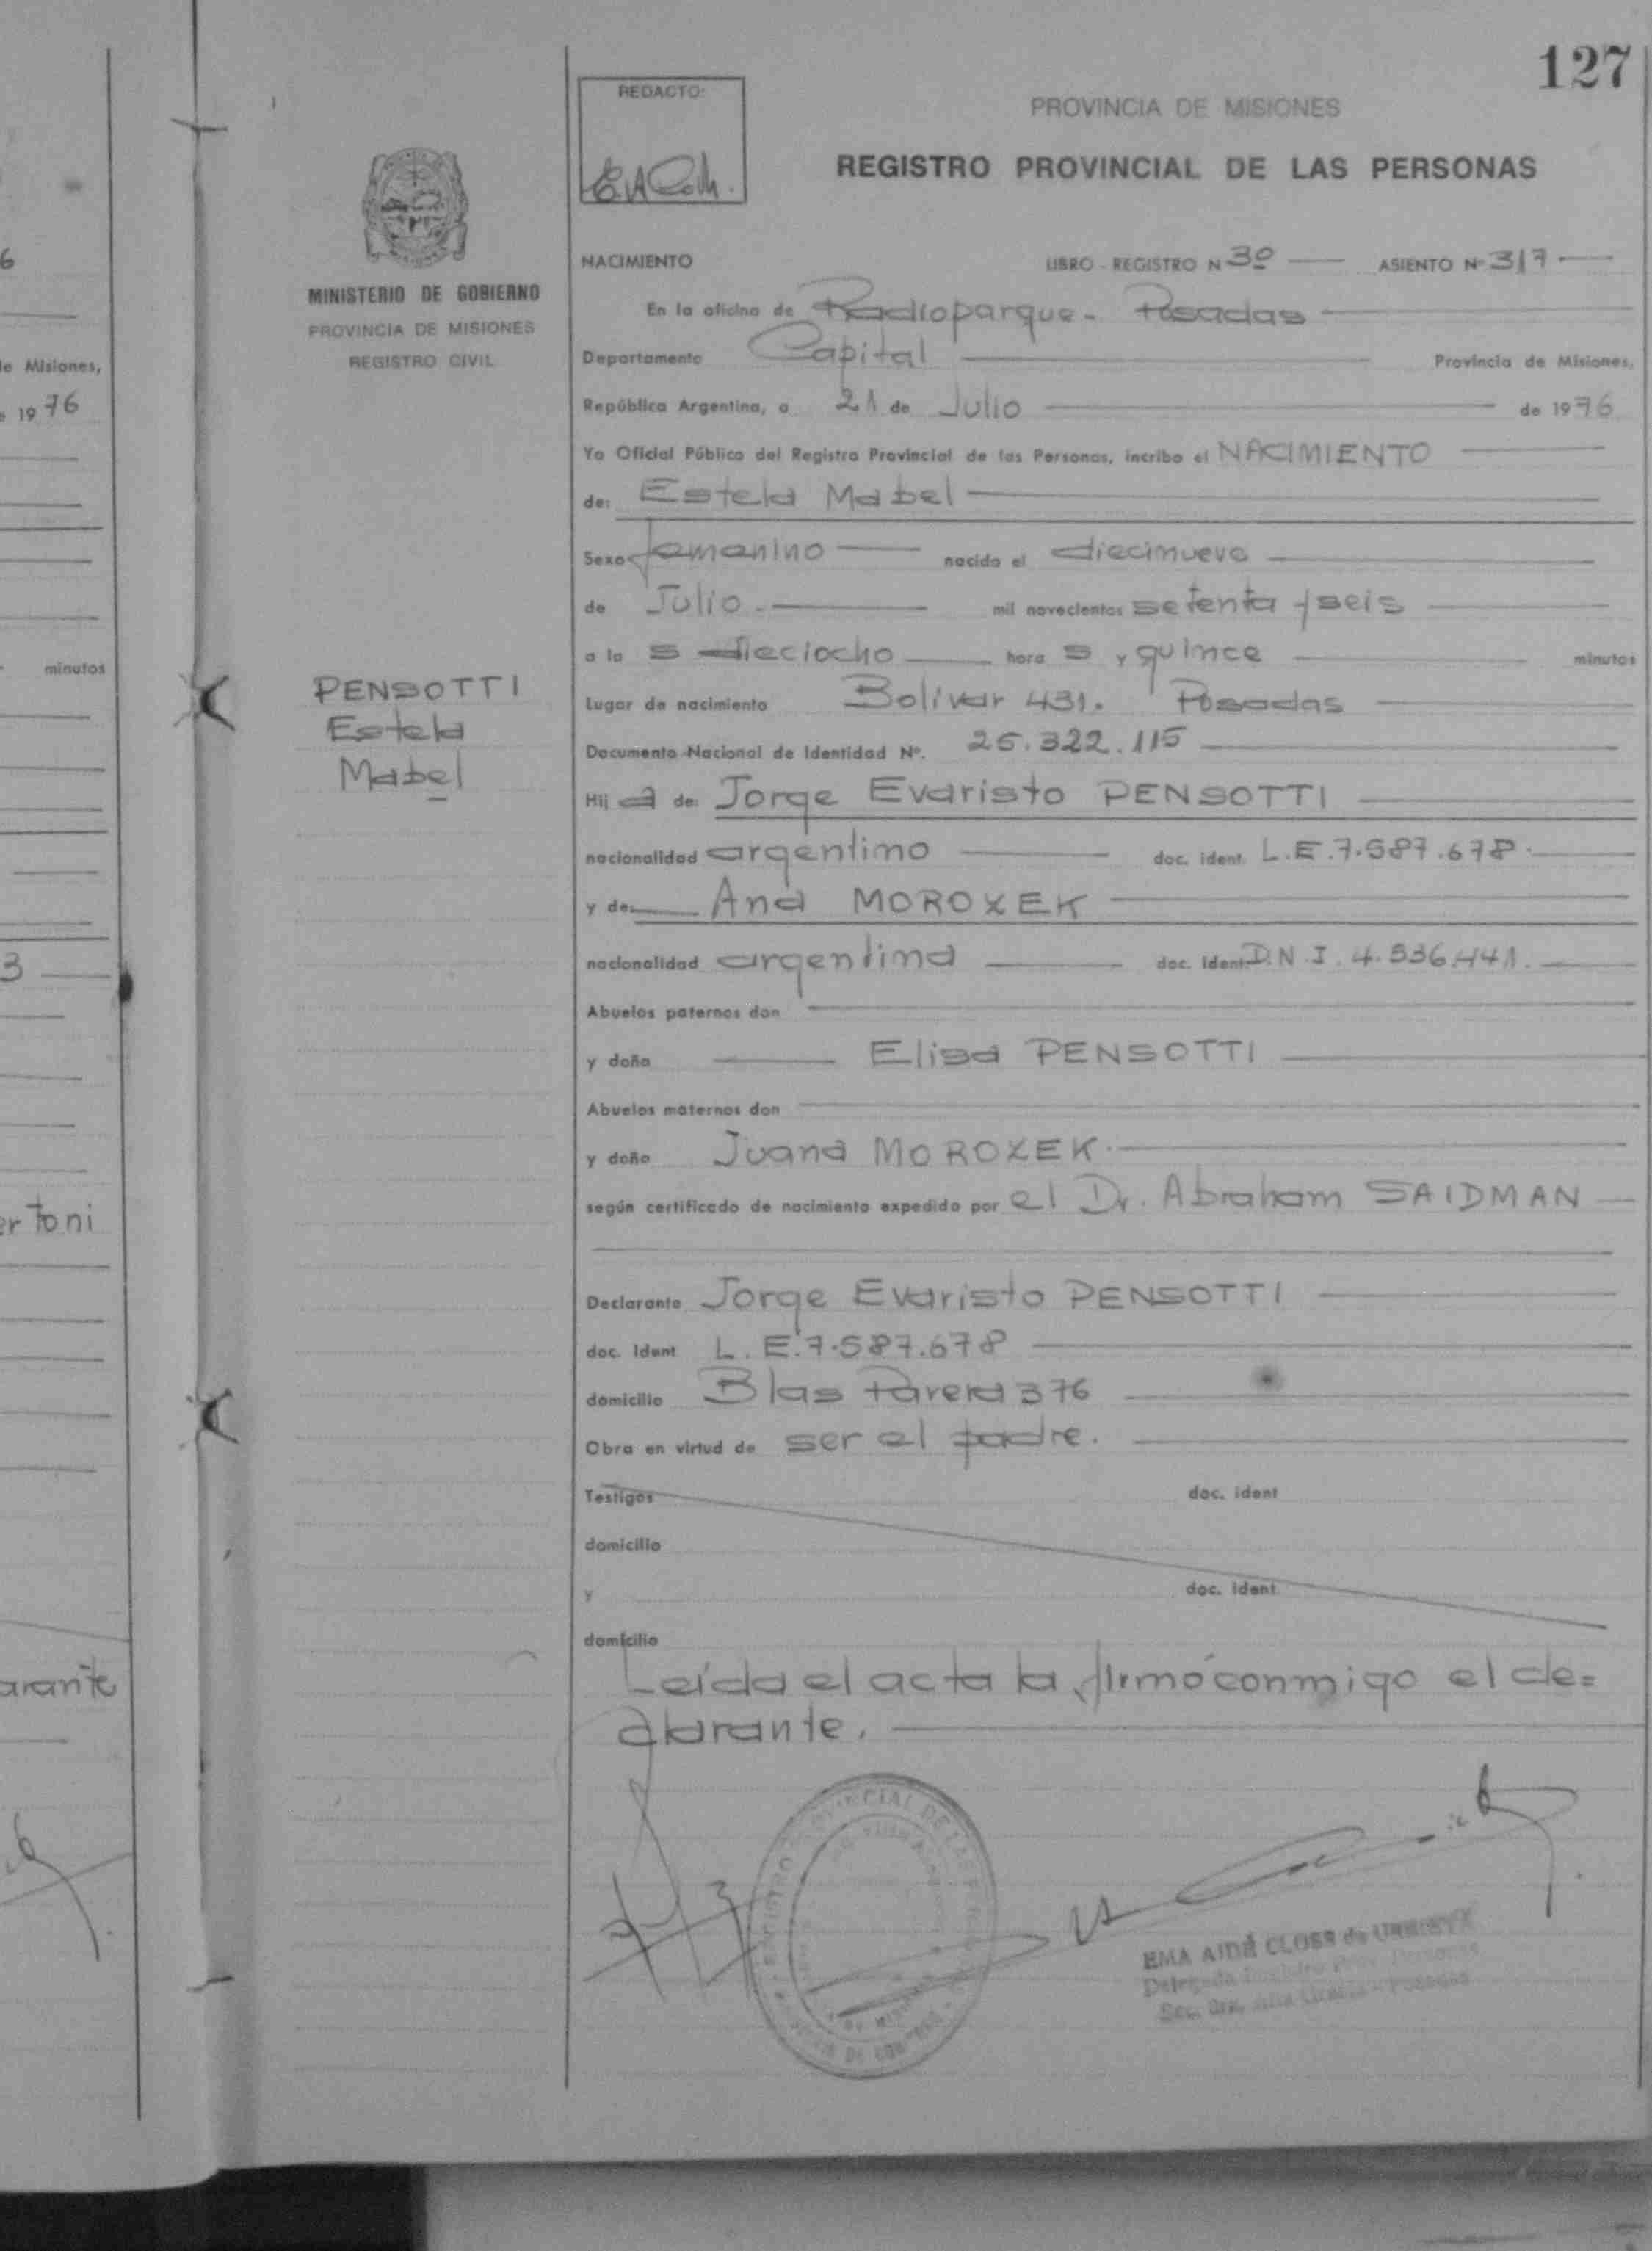 127
REDACTO:
PROVINCIA DE MISIONES
REGISTRO PROVINCIAL DE LAS PERSONAS
MINISTERIO DE GOBIERNO
PROVINCIA DE MISIONES
REGISTRO CIVIL
PENSOTTI
Estela
Mabel
NACIMIENTO LIBRO - REGISTRO N 3º ASIENTO Nº 317
En la oficina de Radioparque - Posadas
Departamento Capital Provincia de Misiones,
República Argentina, a 21 de Julio de 1976
Yo Oficial Público del Registro Provincial de las Personas, incribo el NACIMIENTO
de: Estela Mabel
Sexo femenino nacido el diecinueve
de Julio mil novecientos setenta y seis
a la s dieciocho hora s y quince minutos
Lugar de nacimiento Bolívar 431. Posadas
Documento Nacional de Identidad Nº. 25.322.115
Hij a de: Jorge Evaristo PENSOTTI
nacionalidad argentino doc. ident. L.E.7.587.678.
y de: Ana MOROZEK
nacionalidad argentina doc. ident. D.N.I. 4.536.441.
Abuelos paternos don
y doña Elisa PENSOTTI
Abuelos maternos don
y doña Juana MOROZEK.
según certificado de nacimiento expedido por el Dr. Abraham SAIDMAN
Declarante Jorge Evaristo PENSOTTI
doc. Ident L.E.7.587.678
domicilio Blas Parera 376
Obra en virtud de ser el padre.
Testigos doc. ident
domicilio
y doc. ident.
domicilio
Leída el acta la firmó conmigo el de=
clarante.
EMA AIDÉ CLOSS de
Delegada Registro Prov. Personas
de Misiones,
de 1976
minutos
3
arante